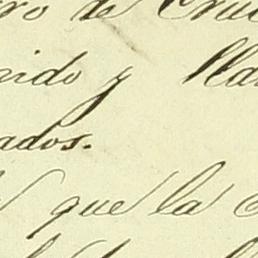 ro de Cruc
nido y lla
ados.
que la